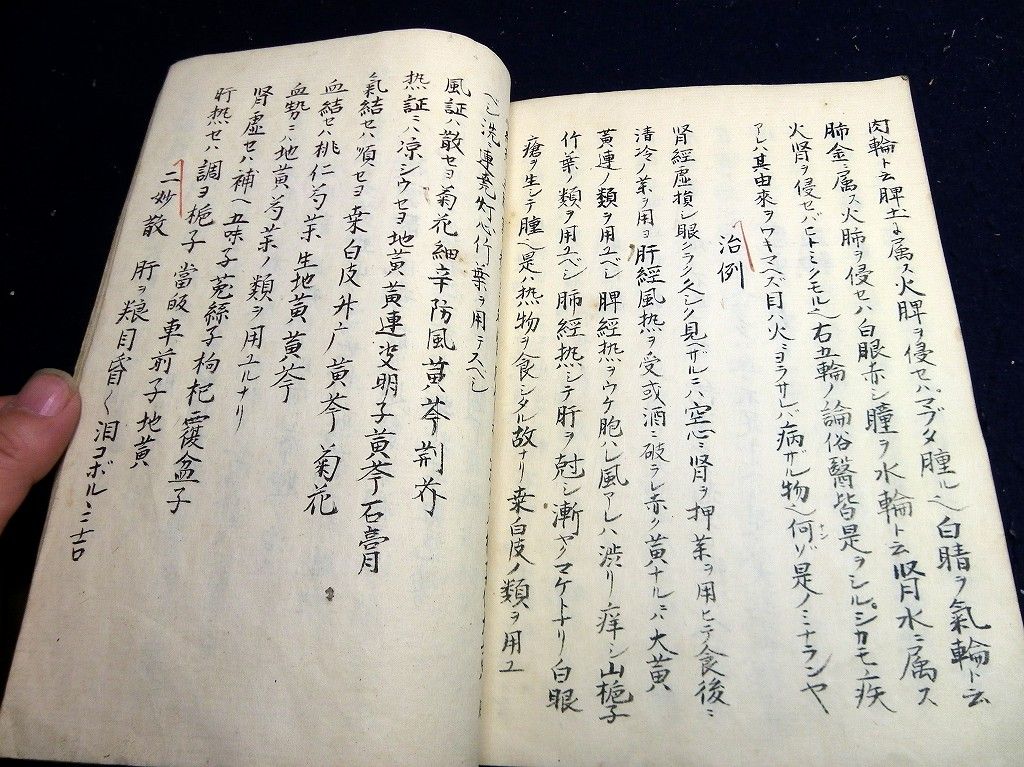 肉輪ト云脾土ニ属ス火脾ヲ侵セバマブタ腫ル也白睛ヲ氣輪ト云
肺金ニ属ス火肺ヲ侵セハ白眼赤シ瞳ヲ水輪ト云腎水ニ属ス
火腎ヲ侵セバヒトミクモル也右五輪ノ論俗醫皆是ヲシル シカモ疾
アレハ其由來ヲワキマヘズ目ハ火ニヨラサレバ病ザル物也何ゾ是ノミナランヤ
治例
腎經虚損シ眼シラクク久シク見ヘザルニハ空心ニ腎ヲ押薬ヲ用ヒテ食後ニ
清冷ノ薬ヲ用ヨ肝經風热ヲ受或酒ニ破ラレ赤ク黄ナルニハ大黄
黄連ノ類ヲ用ユベシ脾經热ヲウケ胞ハレ風アレハ渋リ痒シ山梔子
竹葉ノ類ヲ用ユベシ肺經热シテ肝ヲ尅シ漸ヤクマケトナリ白眼
瘡ヲ生シテ腫也是ハ热物ヲ食シタル故ナリ桒白皮ノ類ヲ用ユ
ベシ洗ニ連堯灯心竹葉ヲ用テスベシ
風証ハ散セヨ菊花細辛防風黄芩荆芥
热証ニハ凉シウセヨ地黄黄連决明子黄芩石膏
氣結セハ順セヨ桒白皮升广黄芩菊花
血結セハ桃仁芍薬生地黄黄芩
血勢ニハ地黄芍薬ノ類ヲ用ユルナリ
腎虚セハ補ヘ五味子菟絲子枸杞覆盆子
肝热セハ調ヲ梔子當皈車前子地黄
二妙散 肝ヲ粮目昏ク泪コボルヽニ吉